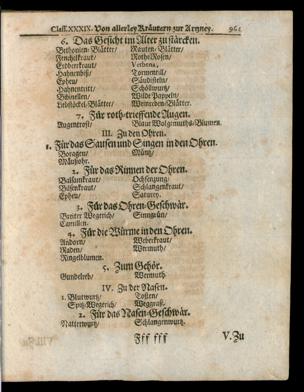 Class. XXXIX. Von allerley Kräutern zur Artzney. 961
6. Das Gesicht im Alter zu stärcken.
Bethonien-Blätter/ Rauten-Blätter/
Fenchelkraut/ Rothe Rosen/
Erdbeerkraut/ Verbena/
Hahnenbiß/ Tormentill/
Epheu/
Hahnentritt/ Schöllwurtz/
Wilde Pappeln/
Liebstöckel-Blätter/ Weinreben-Blätter.
7. Für roth-trieffende Augen.
Augentrost/ Blaue Wolgemuths-Blumen.
III. Zu den Ohren.
1. Für das Sausen und Singen in den Ohren.
Boragen/ Müntz/
2. Für das Rinnen der Ohren.
Balsamkraut/ Ochsenzung/
Schlangenkraut/
Epheu/ Saturey.
3. Für das Ohren-Geschwär.
Breiter Wegerich/ Sinngrün/
Camillen.
4. Für die Würme in den Ohren.
Andorn/ Weberkraut/
Raden/ Wermuth/
Ringelblumen.
5. Zum Gehör.
Gundelreb/ Wermuth.
IV. Zu der Nasen.
1. Blutwurtz/
Spitz-Wegerich/ Weggraß.
2. Für das Nasen-Geschwär.
Natterwurtz/ Schlangenwurtz.
Fff fff V. Zu